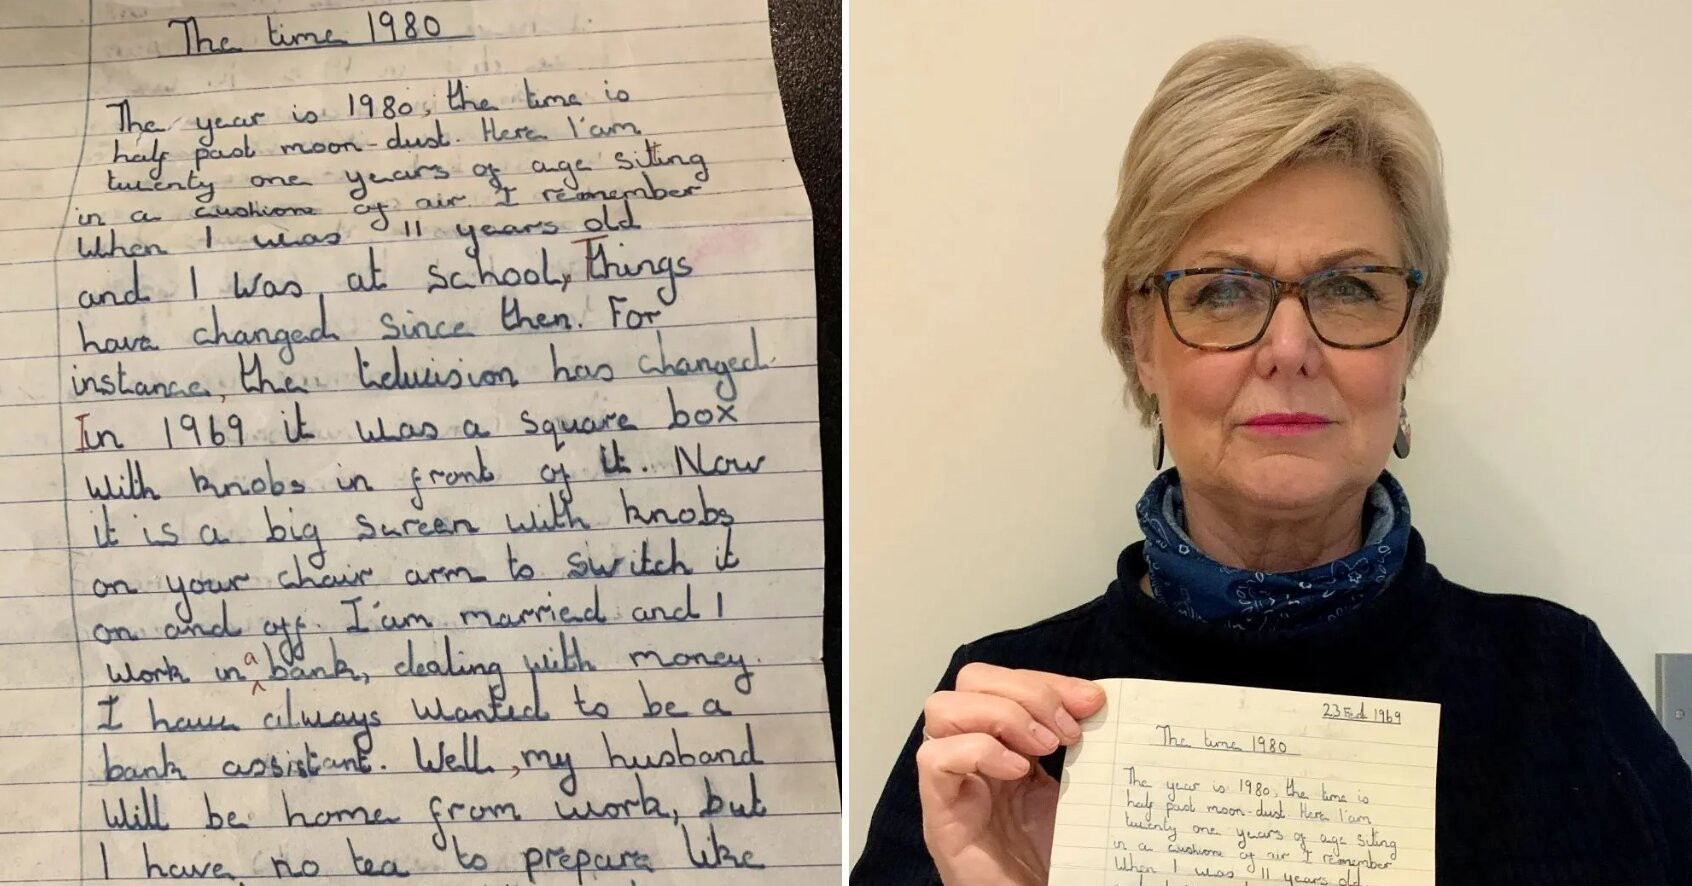 The time 1980
The year is 1980, the time is
half past moon-dust. Here I'am
twenty one years of age siting
in a cushione of air I remember
When I was 11 years old
and I was at school, Things
have changed since then. For
instance, the television has changed.
In 1969 it was a square box
with knobs in front of it. Now
it is a big screen with knobs
on your chair arm to switch it
on and off. I'am married and I
work in a bank, dealing with money.
I have always wanted to be a
bank assistant. Well, my husband
Will be home from work, but
I have no tea to prepare like
23 Fed 1969
The time 1980
The year is 1980, the time is
half past moon-dust. Here I'am
twenty one years of age siting
in a cushione of air I remember
When I was 11 years old